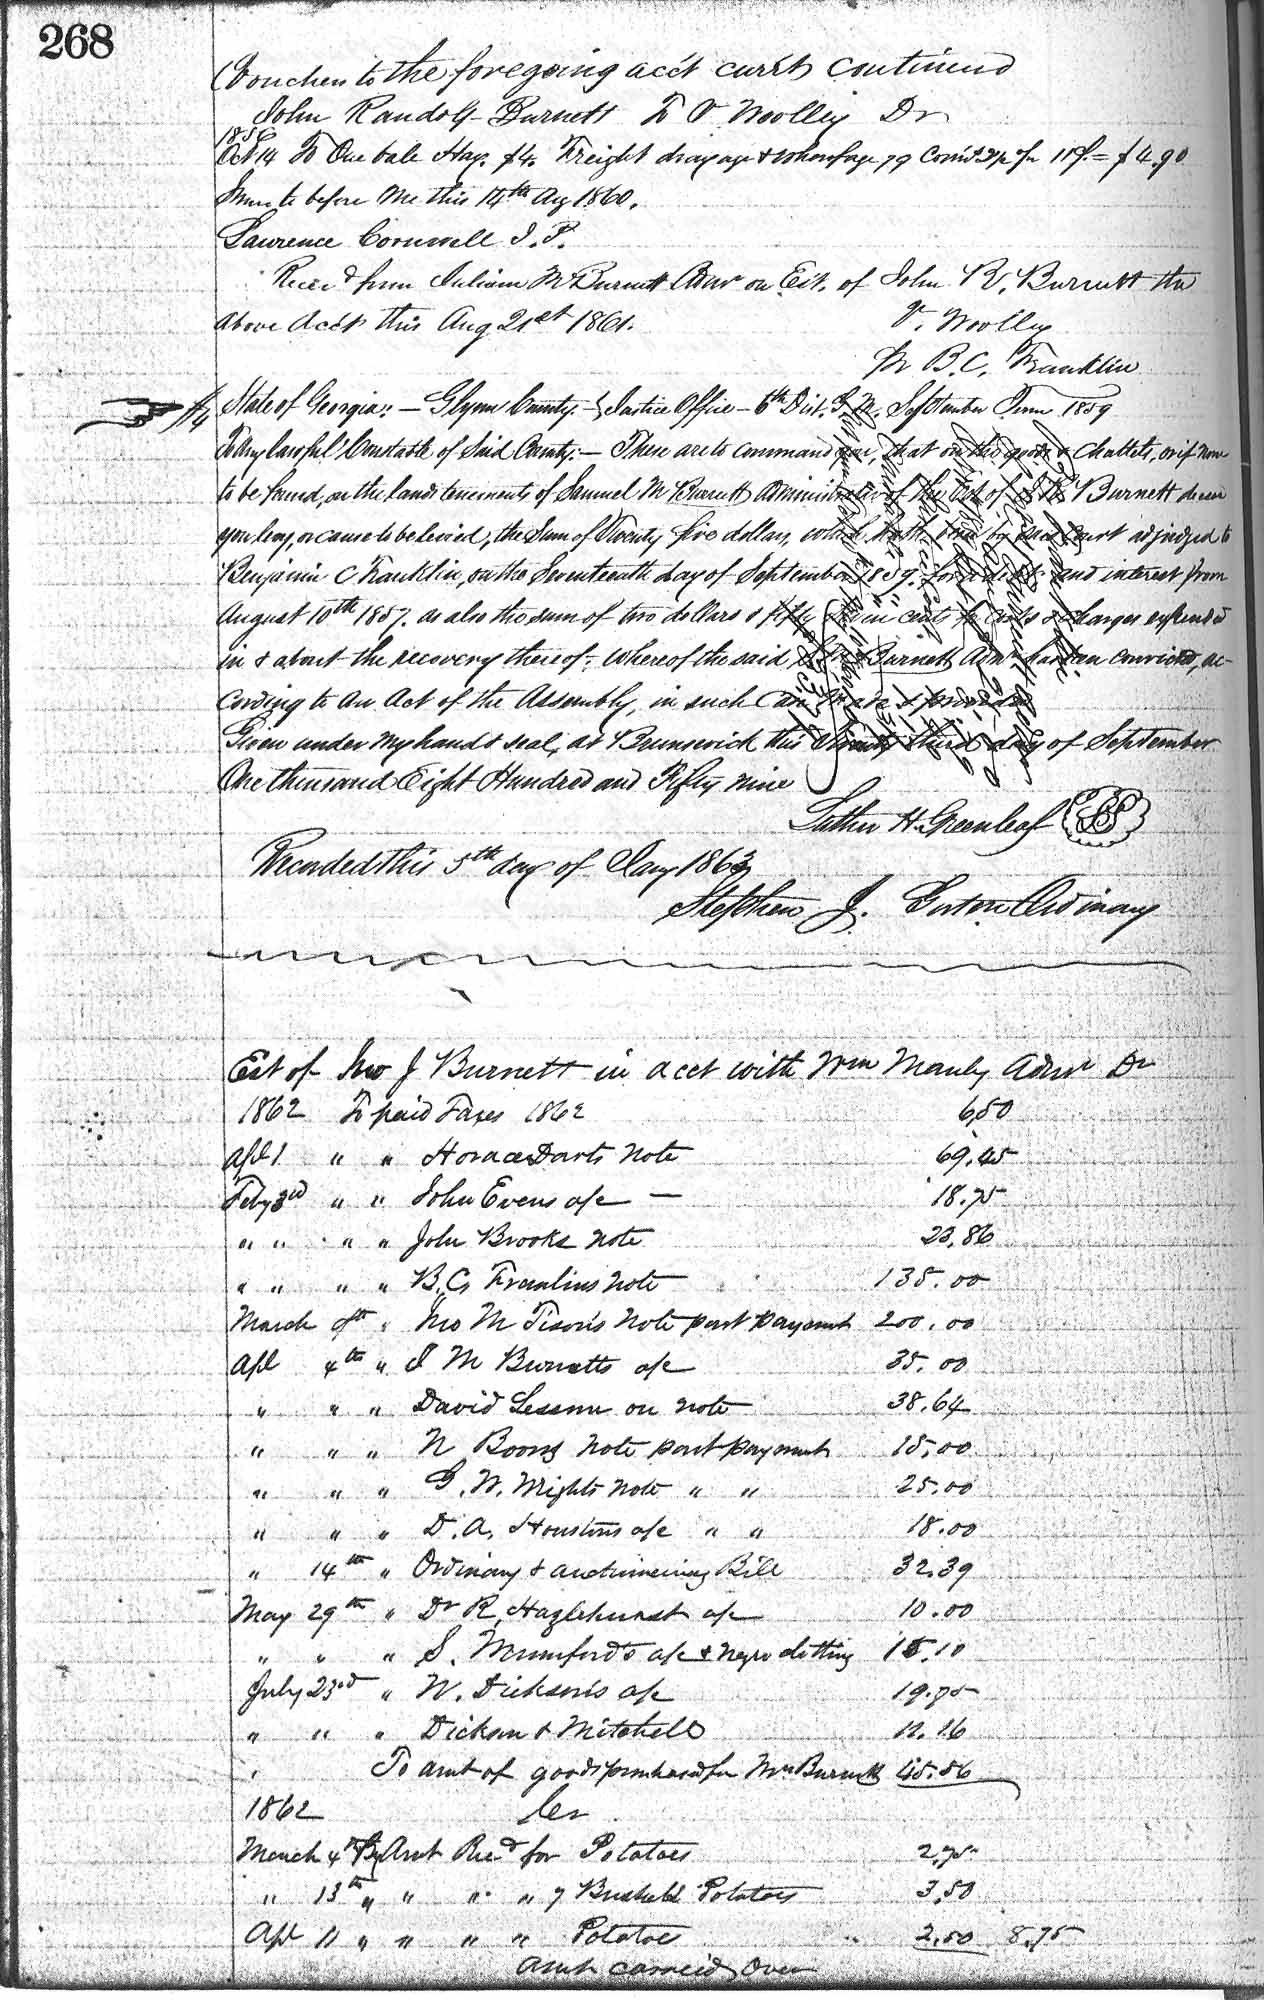 268
Vouchers to the foregoing acct currt continued
John Randolf Burnett To V Woolley Dr
Oct 14 To One bale Hay. $4. Freight drayage & wharfage 79 = $4.90
Sworn to before Me this 14th Aug 1860.
Lawrence Cornwell J. P.
Recd from M Burnett Admr on Est. of John R. Burnett the
above Acct this Aug 21st 1861.
V. Woolley
Pr B. C. Franklin
State of Georgia: — Glynn County. — } Justice Office — 6th Dist. G. M. September Term 1859
To Any lawful Constable of Said County: — These are to command you, that on the goods & chattels, or if none
to be found, on the lands tenements of Samuel M Burnett Administrator of the Est of Burnett
you levy, or cause to be levied, the Sum of Twenty five dollars, which hath been by said Court adjudged to
Benjamin C Franklin, on the Seventeenth day of September 1859. for debt and interest from
August 10th 1857. as also the sum of two dollars & fifty cents for Costs & charges expended
in & about the recovery thereof: Whereof the said Burnett Admr has been convicted, ac-
cording to an Act of the Assembly, in such Case made & provided
Given under my hand & seal, at Brunswick this Twenty third day of September
One thousand Eight Hundred and Fifty nine
Luther H. Greenleaf LS
Recorded this 5th day of Jany 1863
Stephen J. Gorton Ordinary
Est of Jno J Burnett in acct with Wm Manly Admr Dr
1862 To paid Taxes 1862 6,50
Apl 1 " " Horace Darts Note 69.45
Feby 3rd " " John Evens a/c — 18.75
" " " " John Brooks Note 23,86
" " " " B. C. Franlins Note 135.00
March 8th " Jno M Tison's Note part payment 200.00
Apl 4th " J M Burnetts a/c 35.00
" " " David Lessnu on note 38.64
" " " N Boons Note part payment 15.00
" " " G. W. Wrights Note " " 25.00
" " " D. A. Houstons a/c " " 18.00
" 14th " Ordinary & auctioneering Bill 32.39
May 29th " Dr R. Hazlehurst a/c 10.00
" " " S. Mumford's a/c & negro clothing 15.10
July 23rd " W. Dickson's a/c 19.75
" " " Dickson & Mitchell 11.16
" To amt of goods purchased for Wm Burnett 45.56
1862 Cr
March 4th By Amt Recd for Potatoes 2,75
" 13th " " " " 7 Bushels Potatoes 3,50
Apl 11 " " " " Potatoes 2.50 8.75
Amt carried Over